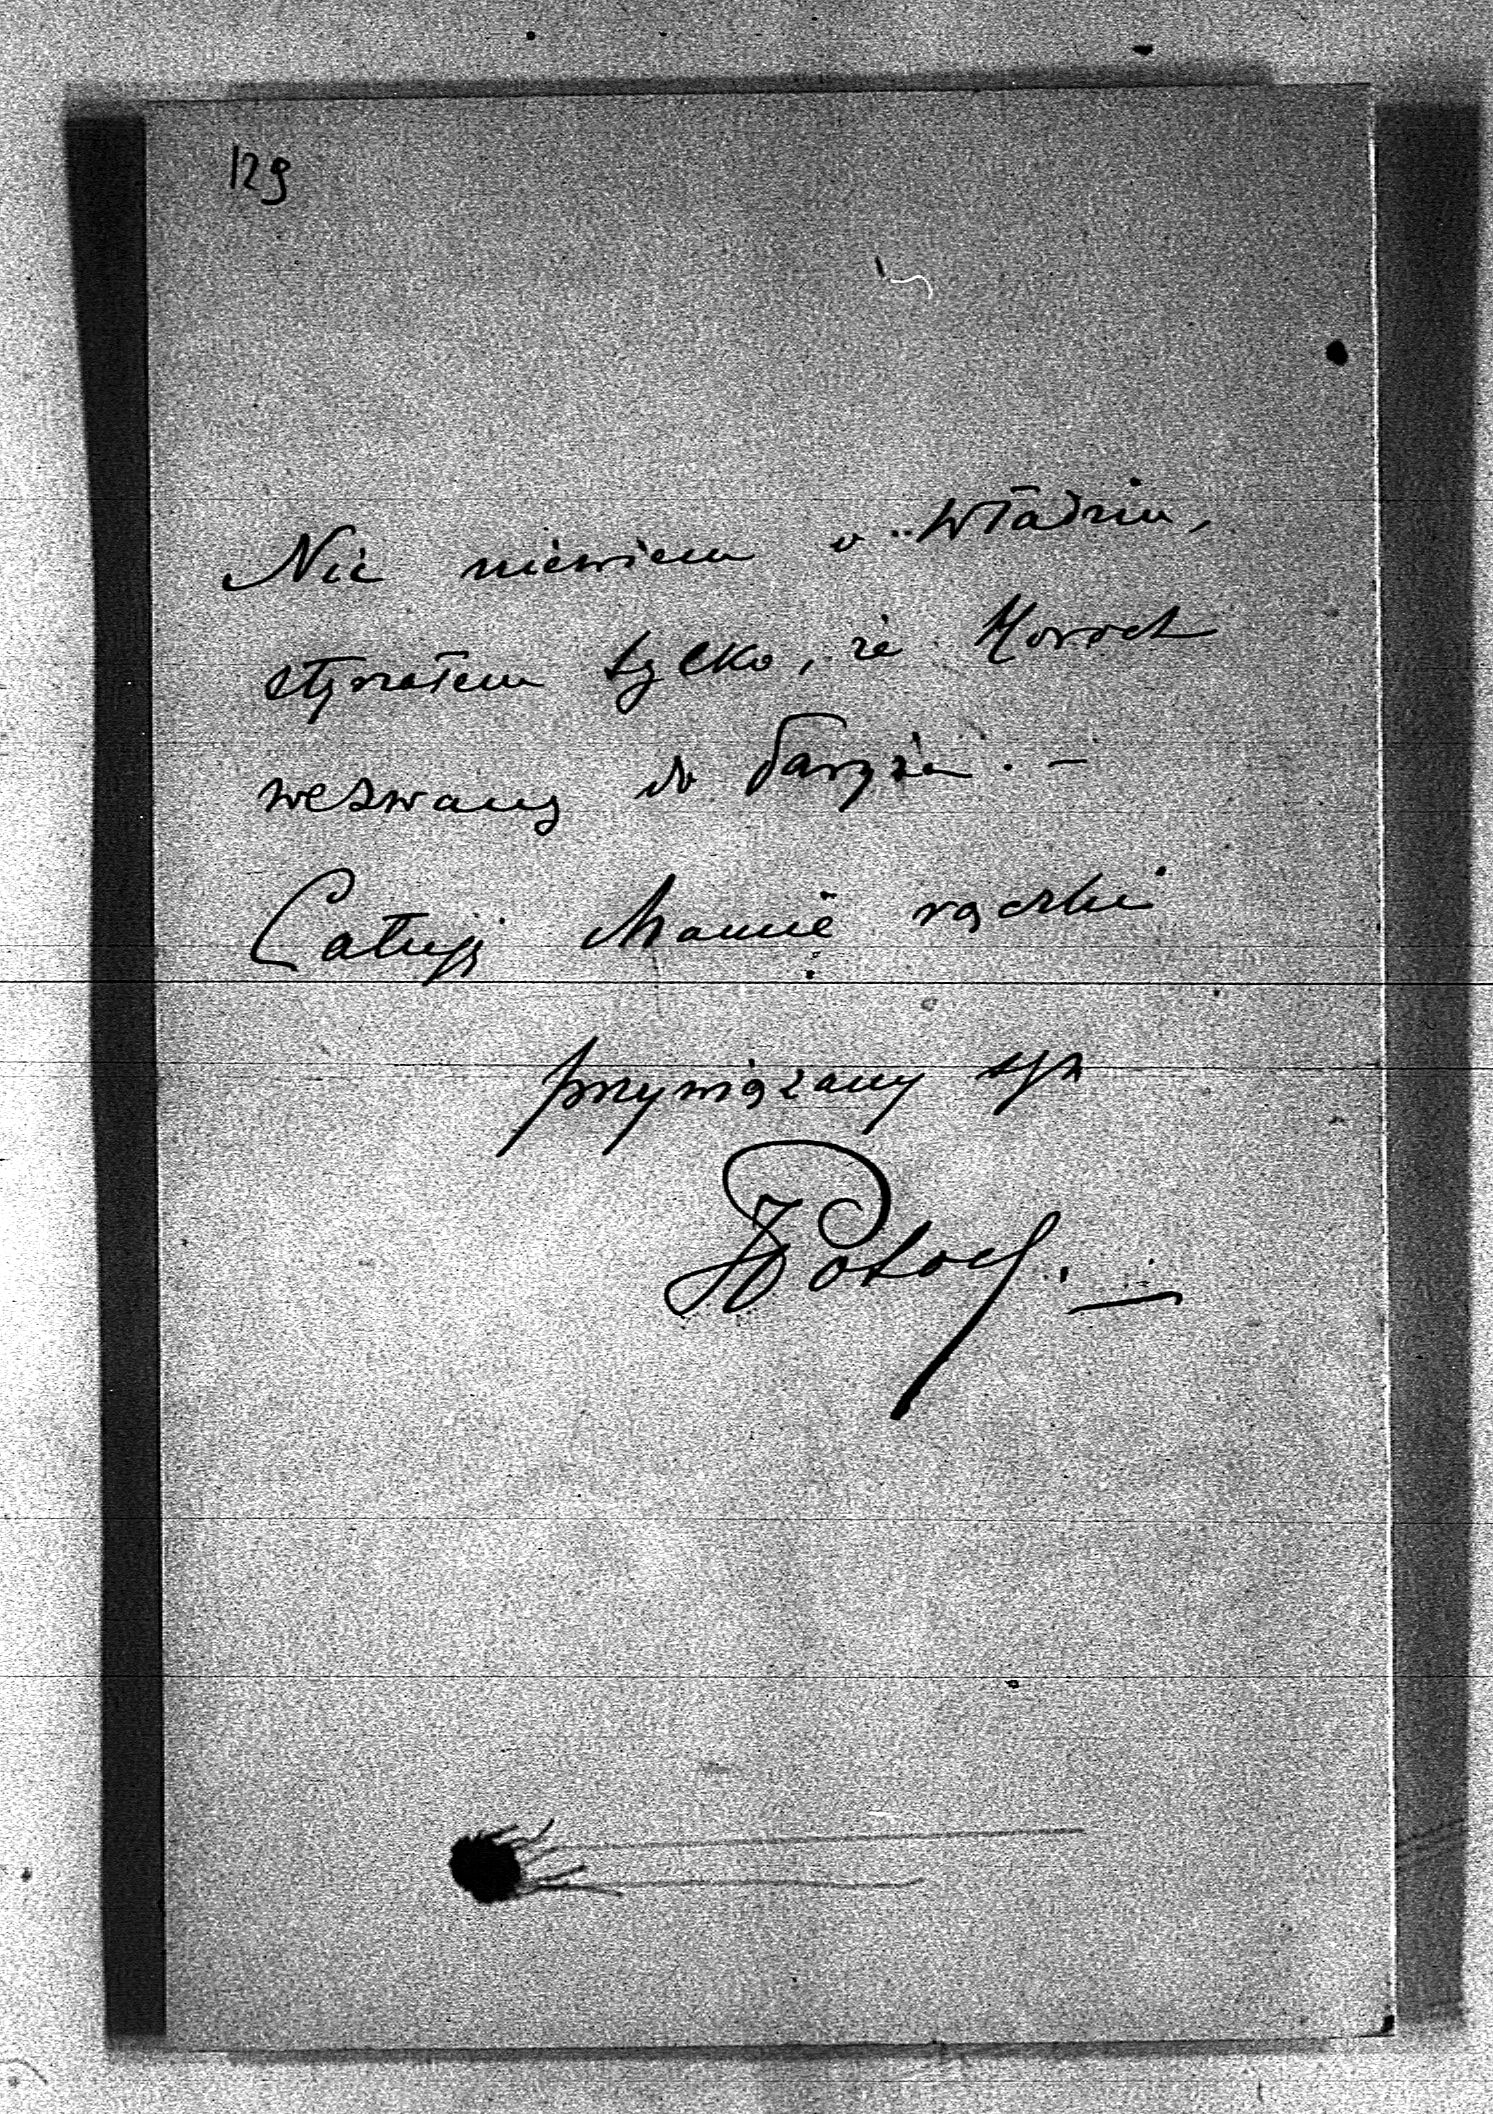 129
Nic niewiem o Władziu,
słyszałem tylko, że Horoch
wezwany do Paryża. —
Całuję Mamie rączki
przywiązany syn
Potock. —